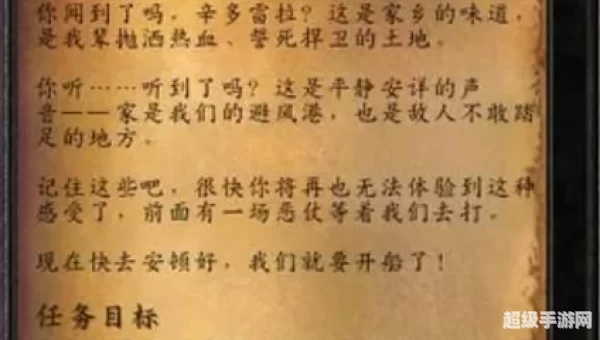 你闻到了吗，辛多雷拉？这是家乡的味道，
是我辈抛洒热血、誓死捍卫的土地。
你听……听到了吗？这是平静安详的声
音——家是我们的避风港，也是敌人不敢踏
足的地方。
记住这些吧，很快你将再也无法体验到这种
感受了，前面有一场恶仗等着我们去打。
现在快去安顿好，我们就要开船了！
任务目标
超级手游网